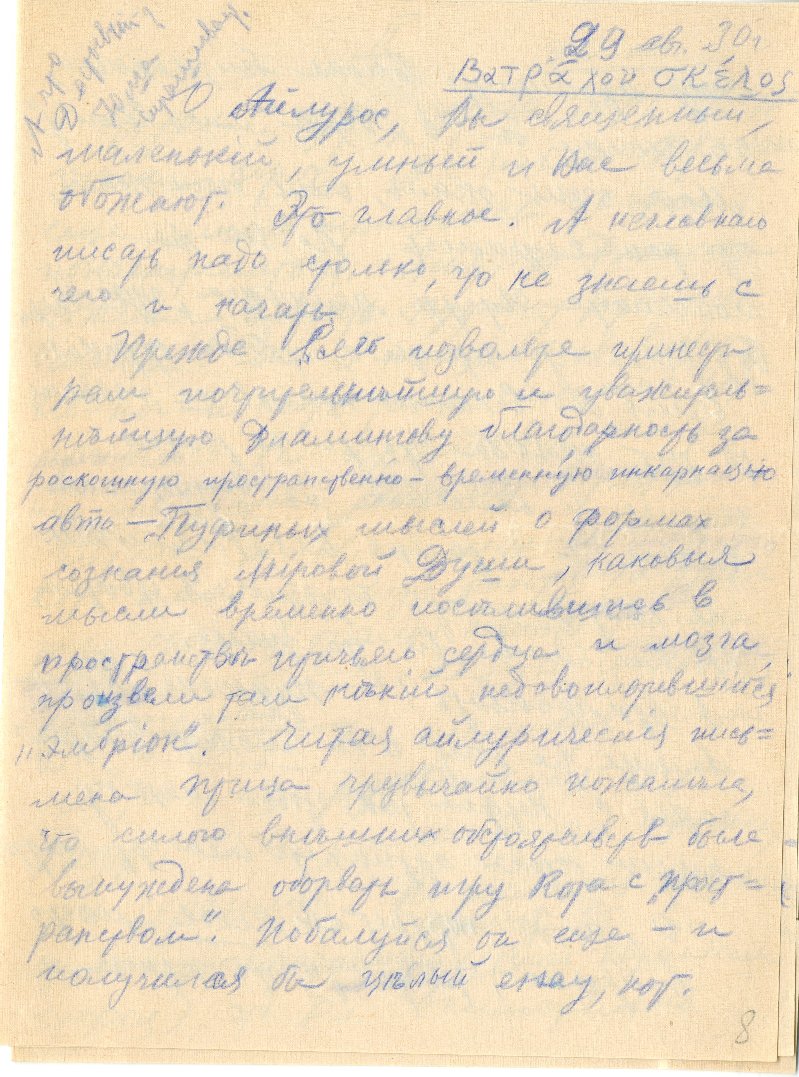 А что
29 авг. 30 г.
Βατράχου σκέλος
О Айлурос, Вы священный,
маленькій, умный и Вас весьма
обожают. Это главное. А неглавнаго
писать надо столько, что не знаешь с
чего и начать.
Прежде всего позвольте принести
Вам почтительнѣйшую и уважитель=
нѣйшую Фламингову благодарность за
роскошную пространственно – временную инкарнацію
авто – Пуфиных мыслей о формах
сознания Міровой Души, каковыя
мысли временно поселившись в
пространствѣ птичьяго сердца и мозга,
произвели там нѣкій недовоплотившійся
„эмбріон". Читая айлурическія пись=
мена Птица чрезвычайно пожалѣла,
что силою внѣшних обстоятельств была
вынуждена оборвать игру Кота с „прост=
ранством". Побалуйся он еще – и
получился бы цѣлый
8